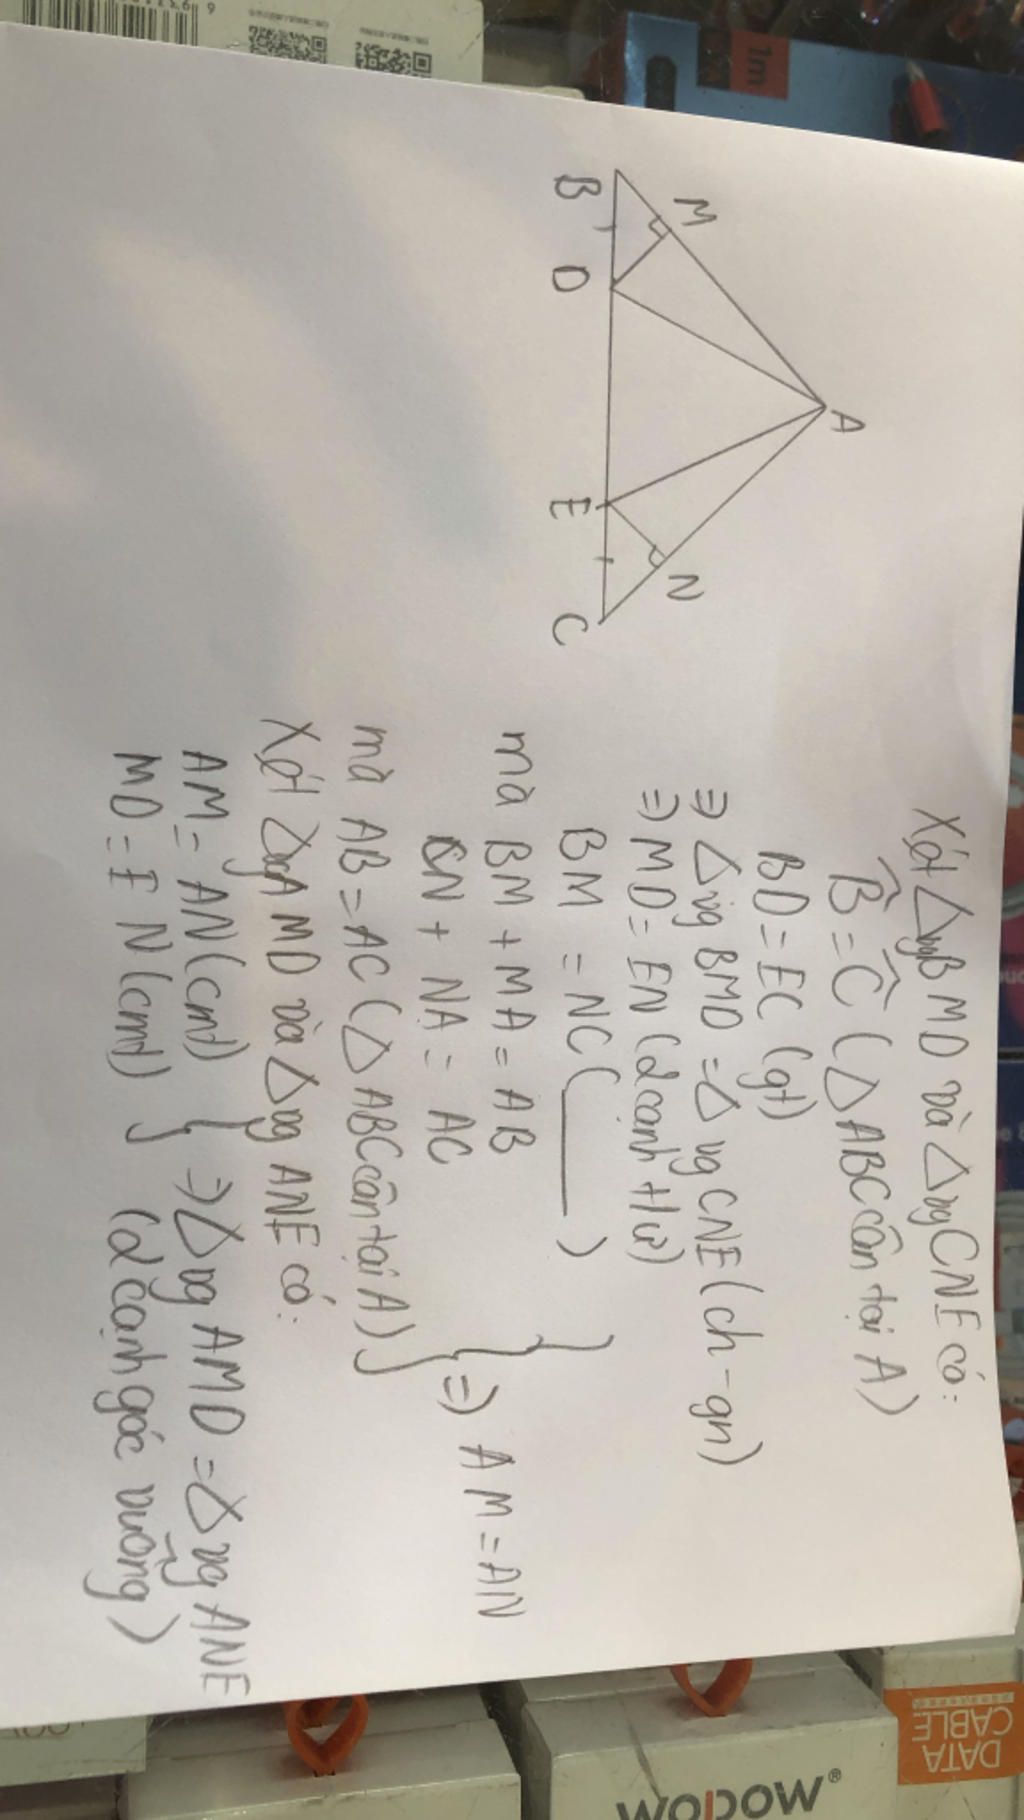 A
M
N
B
D
E
C
Xét △vg BMD và △vg CNE có:
B̂ = Ĉ (△ ABC cân tại A)
BD = EC (gt)
⇒ △vg BMD = △vg CNE (ch-gn)
⇒ MD = EN (2 cạnh t/ư)
BM = NC (______)
mà BM + MA = AB
CN + NA = AC
mà AB = AC (△ ABC cân tại A)
} ⇒ AM = AN
Xét △vg AMD và △vg ANE có:
AM = AN (cmt)
MD = EN (cmt)
} ⇒ △vg AMD = △vg ANE
(2 cạnh góc vuông)
1m
DATA
CABLE
WOPOW®